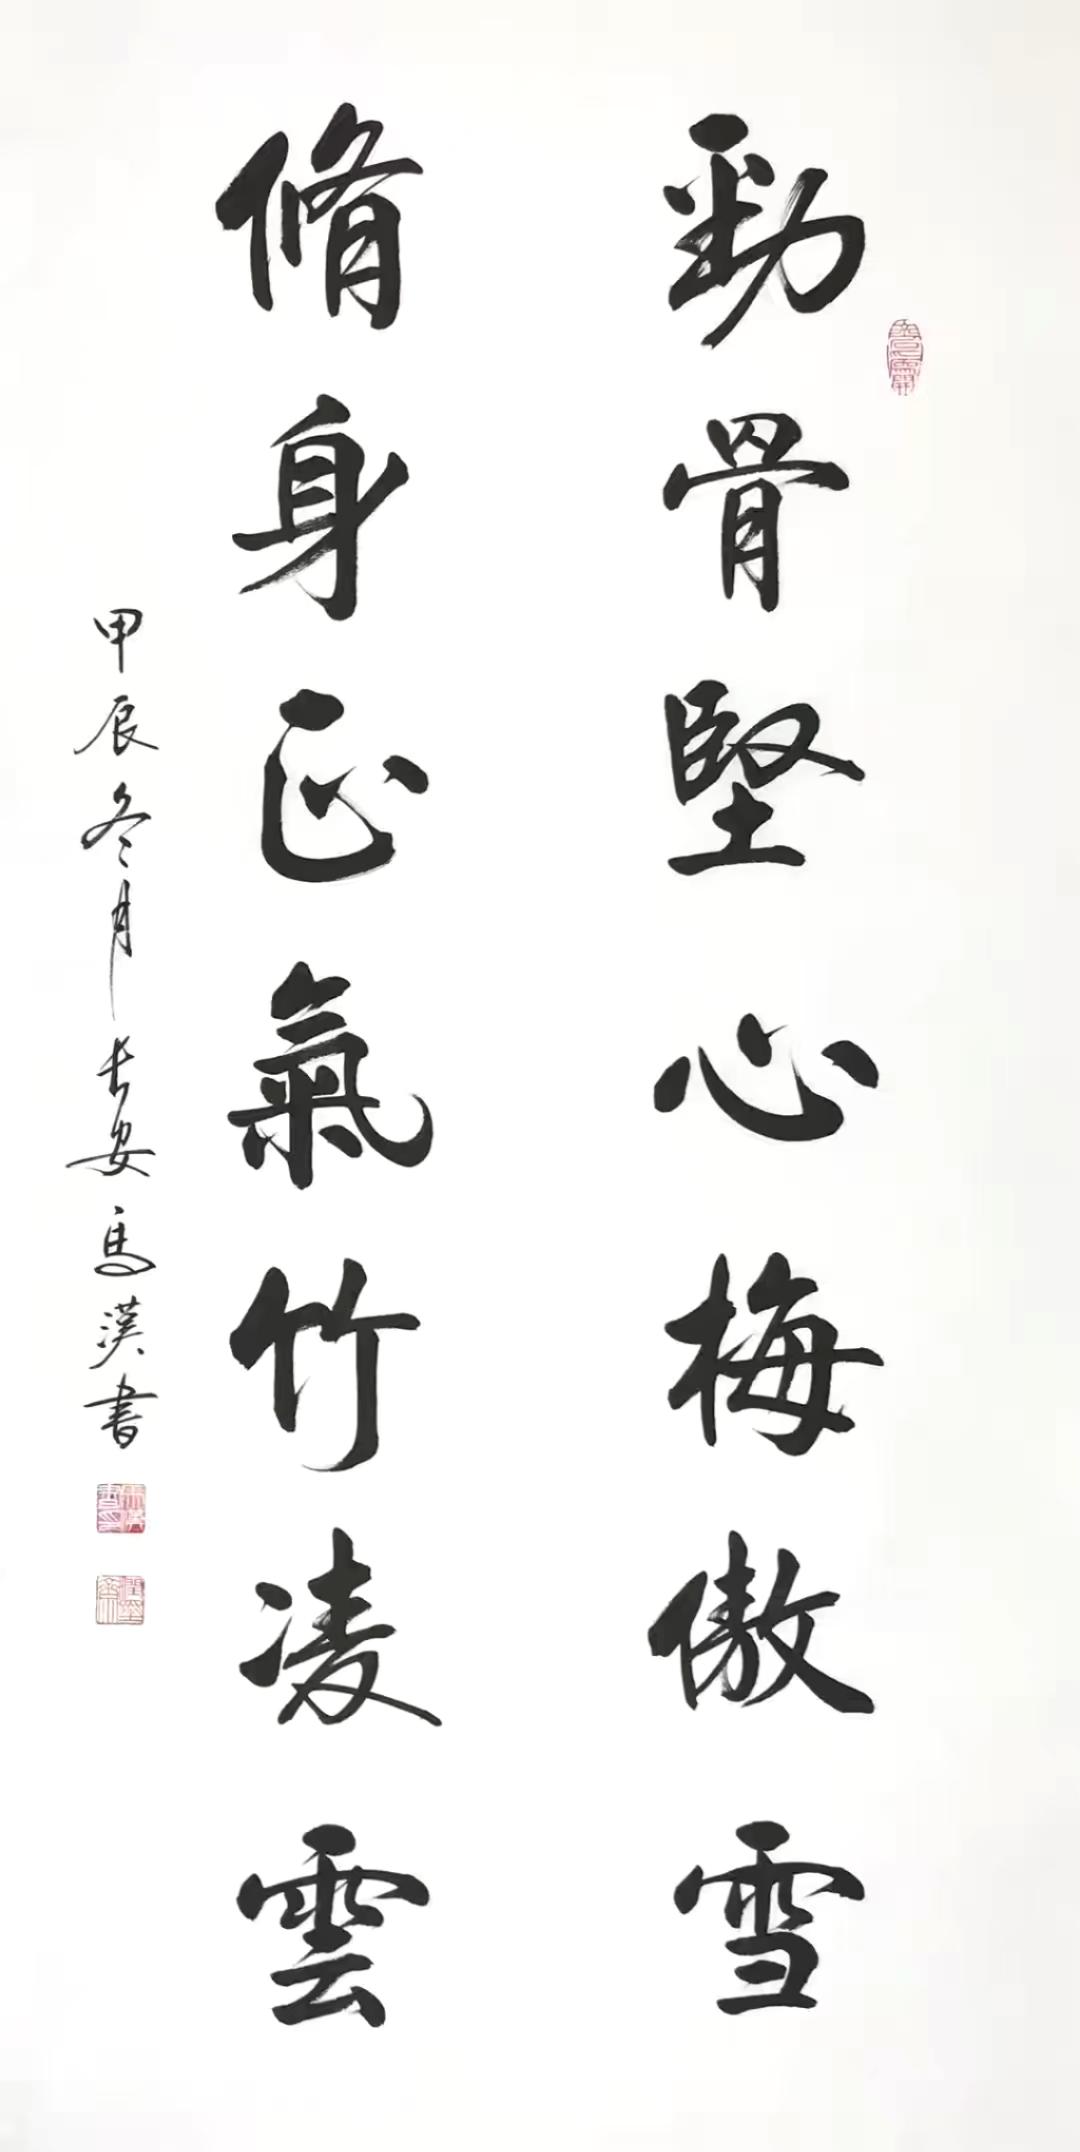 勁骨堅心梅傲雪
脩身正氣竹凌雲
甲辰冬月長安馬漢書